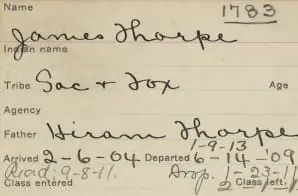 Name 1783
James Thorpe
Indian name
Tribe Sac + Fox Age
Agency
Father Hiram Thorpe
1-9-13
Arrived 2-6-04 Departed 6-14-'09
Read: 9-8-11. Drop. 1-23-11
Class entered 2 Class left